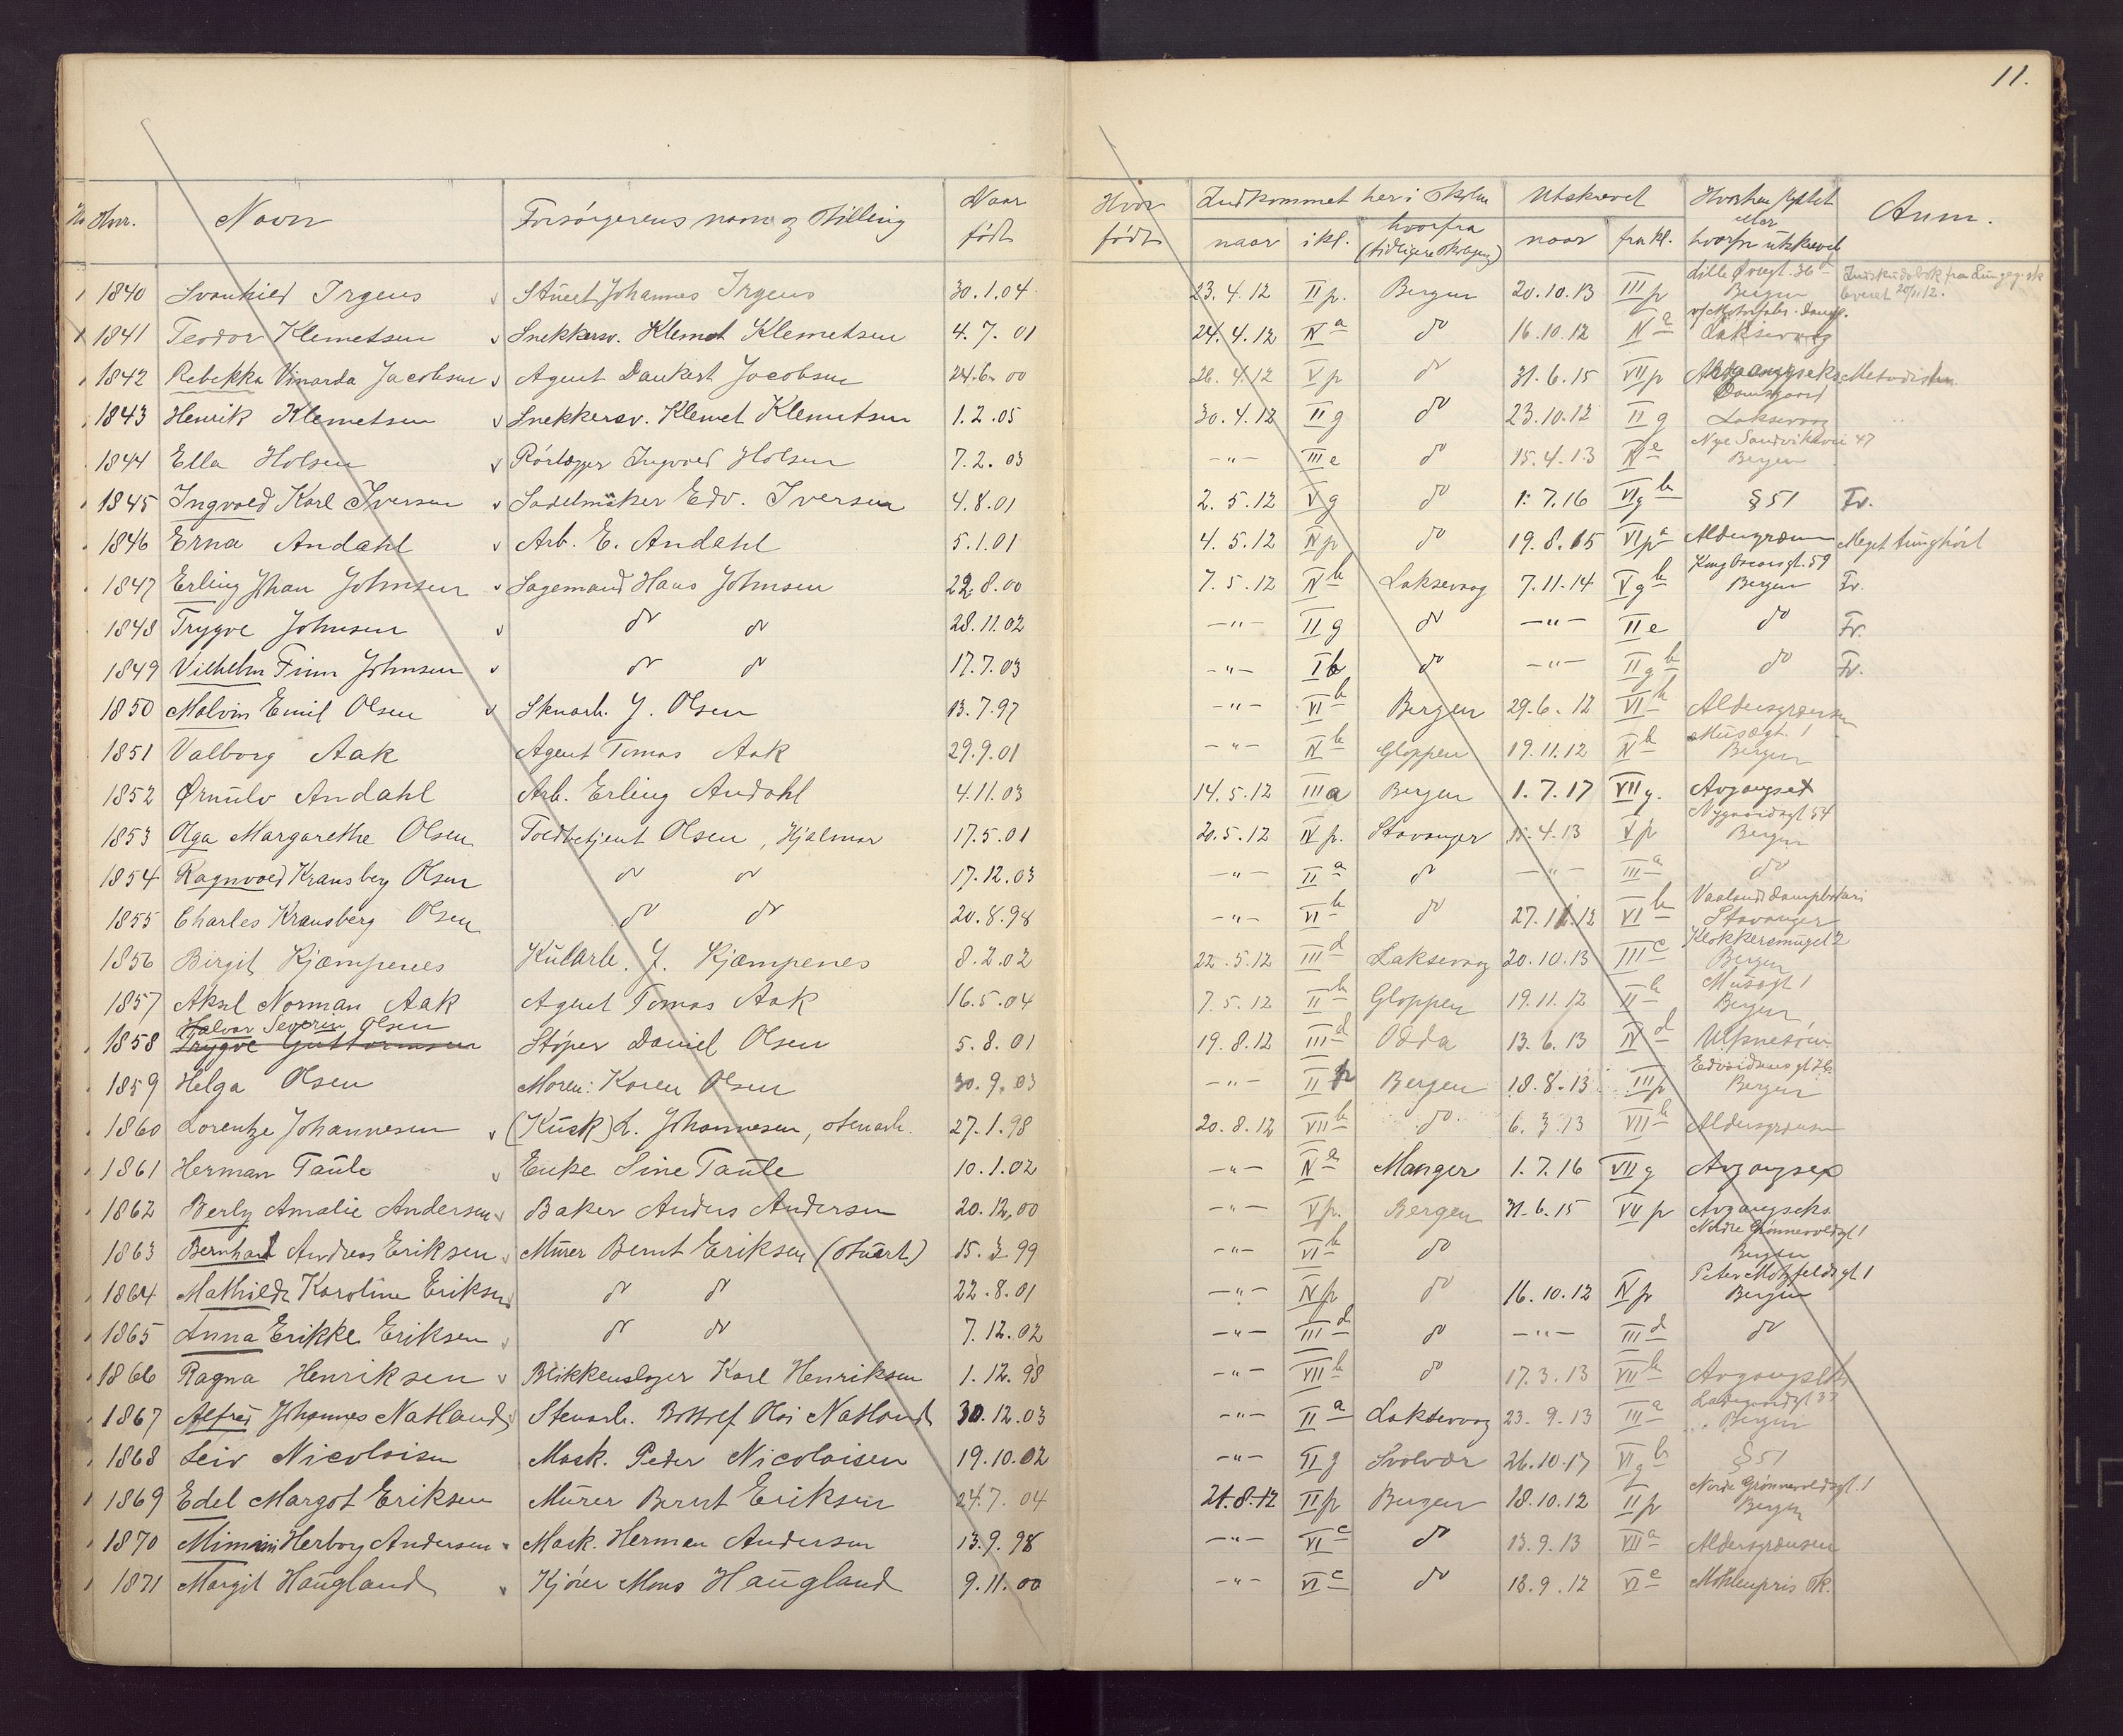 11.
No Hnr. Navn Forsörgerens navn og Stilling Naar födt Hvor födt Indkommet her i Skolen Utskrevet Hvorhen flyttet eller hvorfor utskrevet Anm.
naar i kl. hvorfra (tidligere skolegang) naar fra kl.
1840 Svanhild Irgens Stuert Johannes Irgens 30.1.04 23.4.12 II p. Bergen 20.10.13 III p Lille Øvregt. 36 Bergen Indskudsbok fra leveret 20/11 12.
1841 Teodor Klemetsen Snekkersv. Klemet Klemetsen 4.7.01 24.4.12 IV a do 16.10.12 IV a Laksevaag
1842 Rebekka Vinarda Jacobsen Agent Dankert Jacobsen 24.6.00 26.4.12 V p do 31.6.15 VII p Avgangseks Metodisten
1843 Henrik Klemetsen Snekkersv. Klemet Klemetsen 1.2.05 30.4.12 II g do 23.10.12 II g Damsgaard Laksevaag
1844 Ella Holsen Rörlægger Ingvald Holsen 7.2.03 -"- III e do 15.4.13 IV e Nye Sandviksvei 47 Bergen
1845 Ingvald Karl Iversen Sadelmaker Edv. Iversen 4.8.01 2.5.12 V g do 1.7.16 VI g b § 51 Fr.
1846 Erna Andahl Arb. E. Andahl 5.1.01 4.5.12 IV p do 19.8.15 VI p a Aldersgrænsen Meget tunghört
1847 Erling Johan Johnsen Sagemand Hans Johnsen 22.8.00 7.5.12 IV b Laksevaag 7.11.14 V g b Kong Oscarsgt. 59 Bergen Fr.
1848 Trygve Johnsen do do 28.11.02 -"- II g do -"- II e do Fr.
1849 Vilhelm Finn Johnsen do do 17.7.03 -"- I b do -"- II g b do Fr.
1850 Malvin Emil Olsen Skoarb. J. Olsen 13.7.97 -"- VI b Bergen 29.6.12 VI b Aldersgrænsen
1851 Valborg Aak Agent Tomas Aak 29.9.01 -"- IV b Gloppen 19.11.12 IV b Musegt. 1 Bergen
1852 Ørnulv Andahl Arb. Erling Andahl 4.11.03 14.5.12 III a Bergen 1.7.17 VII g. Avgangsex
1853 Olga Margarethe Olsen Toldbetjent Olsen, Hjalmar 17.5.01 20.5.12 IV p. Stavanger 15.4.13 V p Nygaardsgt 54 Bergen
1854 Ragnvald Kransberg Olsen do do 17.12.03 -"- II a do -"- III a do
1855 Charles Kransberg Olsen do do 20.8.98 -"- VI b do 27.11.12 VI b Vaaland Dampbakeri Stavanger
1856 Birgit Kjæmpenes Kularb. J. Kjæmpenes 8.2.02 22.5.12 III d Laksevaag 20.10.13 III c Klokkersmuget 2 Bergen
1857 Aksel Norman Aak Agent Tomas Aak 16.5.04 7.5.12 II b Gloppen 19.11.12 II b Musegt 1 Bergen
Halvor Severin Olsen
1858 Trygve Guttormsen Stöper Daniel Olsen 5.8.01 19.8.12 III d Odda 13.6.13 IV d
1859 Helga Olsen Moren: Karen Olsen 30.9.03 -"- II p Bergen 18.8.13 III p Bergen
1860 Lorentze Johannesen (Kusk) L. Johannesen, stenarb. 27.1.98 20.8.12 VII b do 6.3.13 VII b Aldersgrænsen
1861 Herman Taule Enke Sine Taule 10.1.02 -"- IV a Manger 1.7.16 VII g Avgangsex
1862 Berly Amalie Andersen Baker Anders Andersen 20.12.00 -"- V p. Bergen 31.6.15 VII p Avgangseks.
1863 Bernhard Andreas Eriksen Murer Bernt Eriksen (stuert) 15.3.99 -"- VI b do Nedre Grønnevoldsgt 1 Bergen
1864 Mathilde Karoline Eriksen do do 22.8.01 -"- IV p do 16.10.12 IV p Peter Motzfeldtsgt 1 Bergen
1865 Anna Erikke Eriksen do do 7.12.02 -"- III d do -"- III d do
1866 Ragna Henriksen Blikkenslager Karl Henriksen 1.12.98 -"- VII b do 17.3.13 VII b Avgangseks
1867 Alfred Johannes Natland Stenarb. Bottolf Olai Natland 30.12.03 -"- II a Laksevaag 23.9.13 III a Ladegaardsgt 33 Bergen
1868 Leiv Nicolaisen Mask. Peder Nicolaisen 19.10.02 -"- II g Svolvær 26.10.17 VI g b § 51
1869 Edel Margot Eriksen Murer Bernt Eriksen 24.7.04 21.8.12 II p Bergen 18.10.12 II p Nedre Grønnevoldsgt. 1 Bergen
1870 Mimmi Herborg Andersen Mask. Herman Andersen 13.9.98 -"- VI c do 13.9.13 VII a Aldersgrænsen
1871 Margit Haugland Kjörer Mons Haugland 9.11.00 -"- VI c do 18.9.12 VI c Möhlenpris Sk.